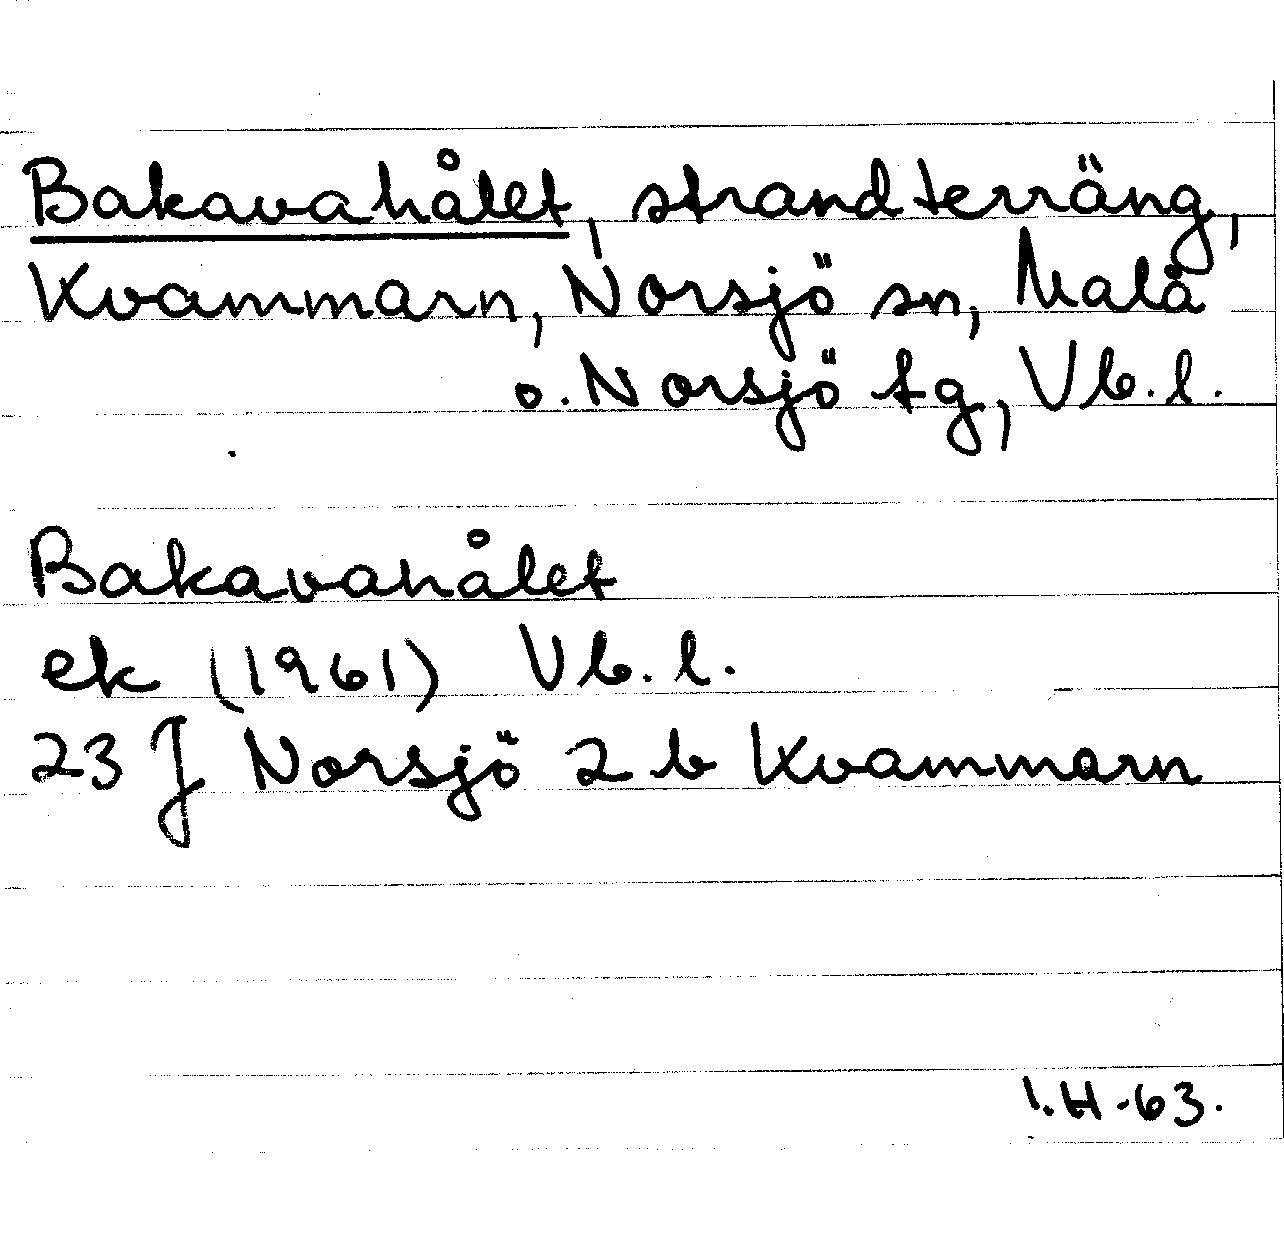 Bakavahålet, strandterräng,
Kvammarn, Norsjö sn, Malå
o. Norsjö tg, Vb. l.
Bakavahålet
ek (1961) Vb. l.
23 J Norsjö 2 b Kvammarn
I.H -63.